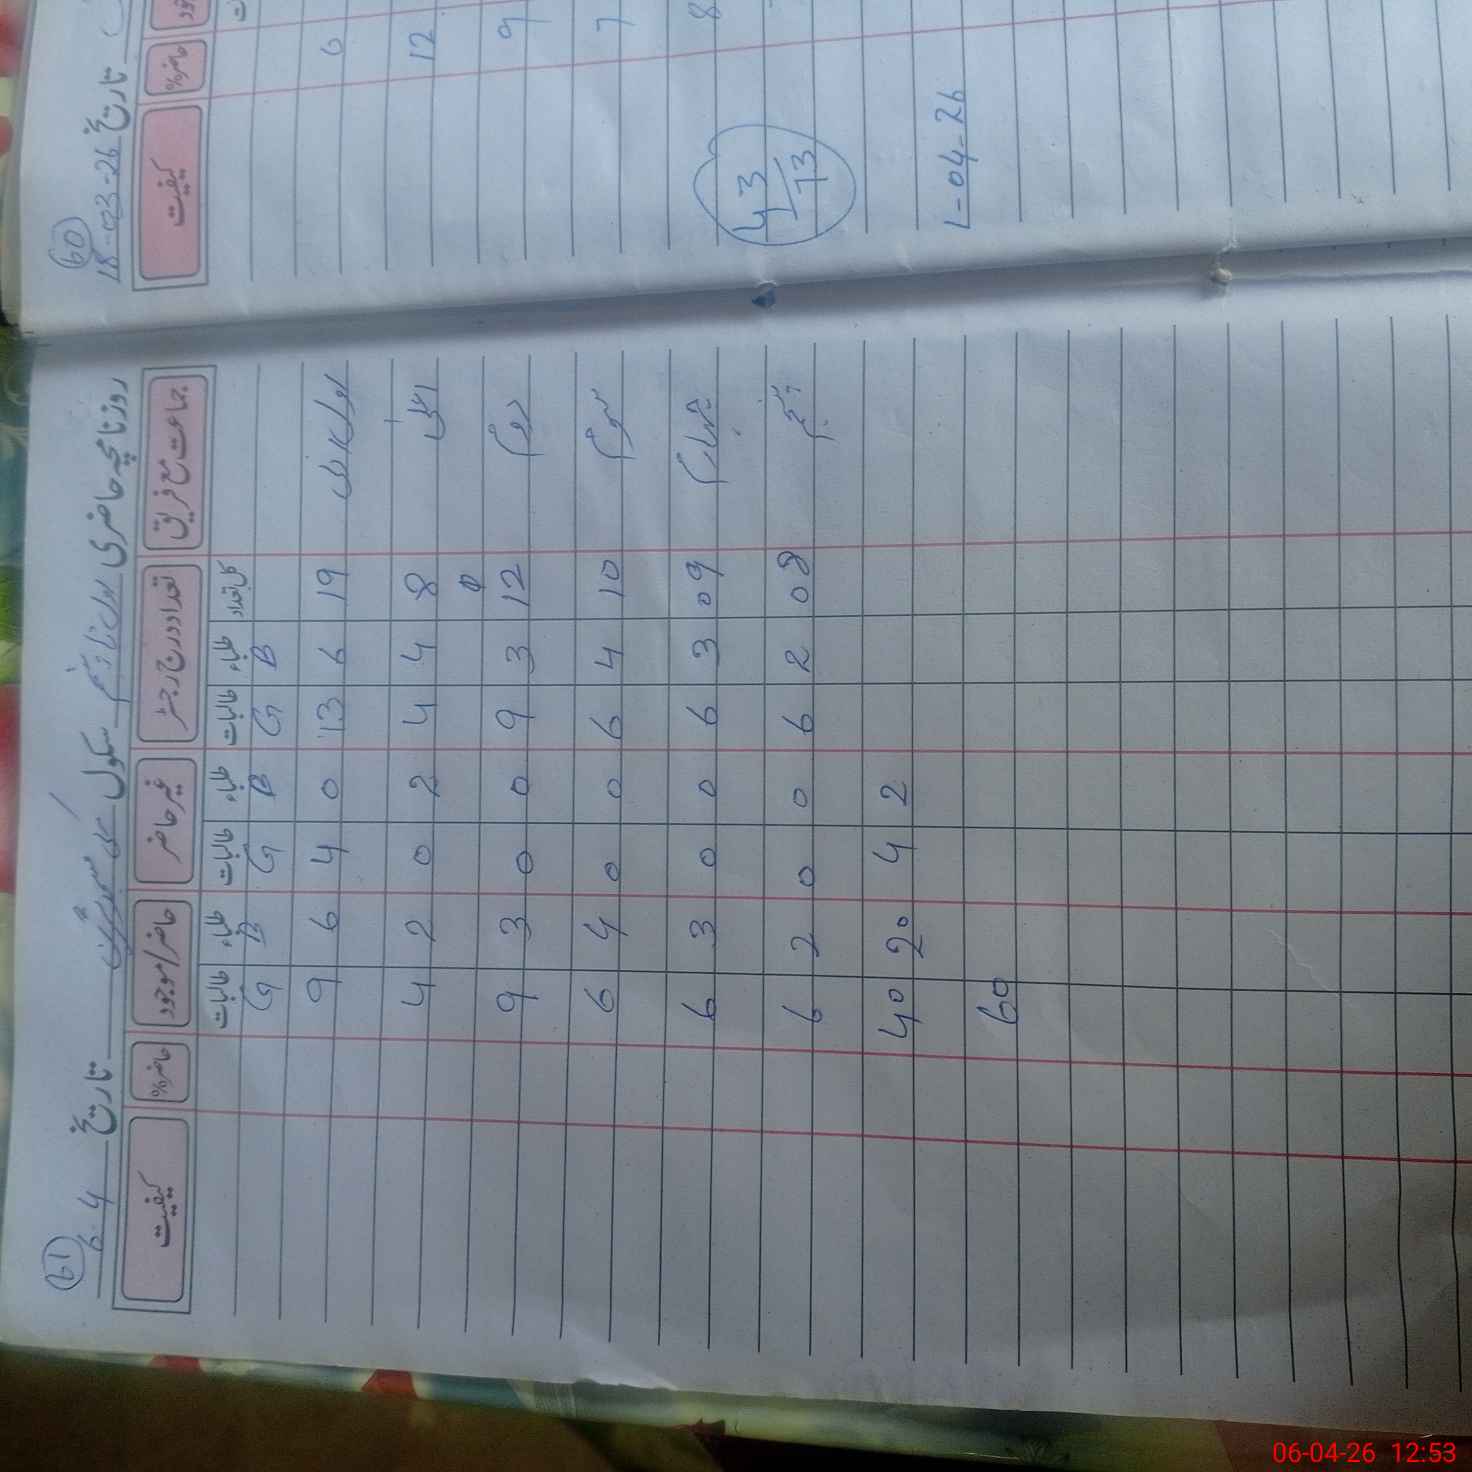 61
روزنامچہ حاضری سکول تاریخ 6-4
جماعت مع فریق تعداد درج رجسٹر غیر حاضر حاضر/موجود حاضر% کیفیت
کل تعداد طلباء طالبات طلباء طالبات طلباء طالبات
B G B G B G
19 6 13 0 4 6 9
8 4 4 2 0 2 4
دوم 12 3 9 0 0 3 9
سوئم 10 4 6 0 0 4 6
چہارم 09 3 6 0 0 3 6
پنجم 08 2 6 0 0 2 6
2 4 20 40
60
60
تاریخ 18-03-26
حاضر% کیفیت
6
12
9
7
8
43
13
1-04-26
06-04-26 12:53